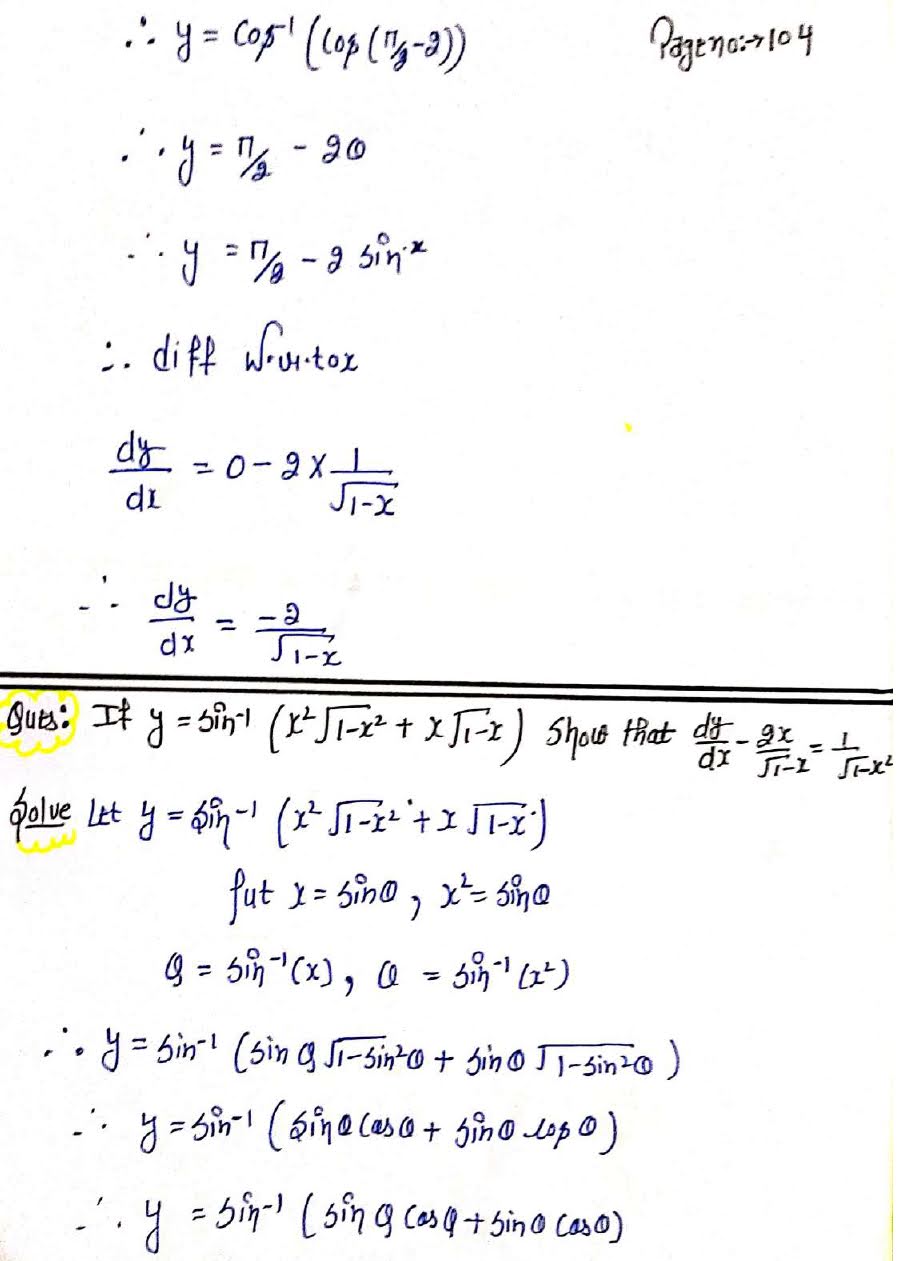 ∴ y = Cos⁻¹ (cos (π/2-2)) Page no:→104
∴ y = π/2 - 2θ
∴ y = π/2 - 2 sin⁻x
∴ diff w.r.to x
dy/dx = 0 - 2 × 1/√1-x
∴ dy/dx = -2/√1-x
Ques: If y = sin⁻¹ (x²√1-x² + x√1-x) Show that dy/dx - 2x/√1-x = 1/√1-x²
Solve Let y = sin⁻¹ (x²√1-x² + x√1-x)
Put x = sinθ, x² = sinθ
θ = sin⁻¹(x), θ = sin⁻¹(x²)
∴ y = sin⁻¹ (sin θ √1-sin²θ + sin θ √1-sin²θ)
∴ y = sin⁻¹ (sin θ cos θ + sin θ cos θ)
∴ y = sin⁻¹ (sin θ cos θ + sin θ cos θ)